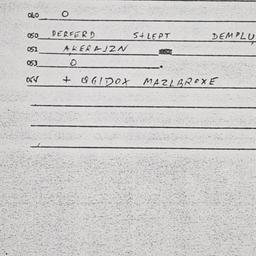 060 O
050 DERFERD S+LEPT DEMPLU
052 AKERAJZN
053 O .
054 + QGIDOX MAZLBROXE